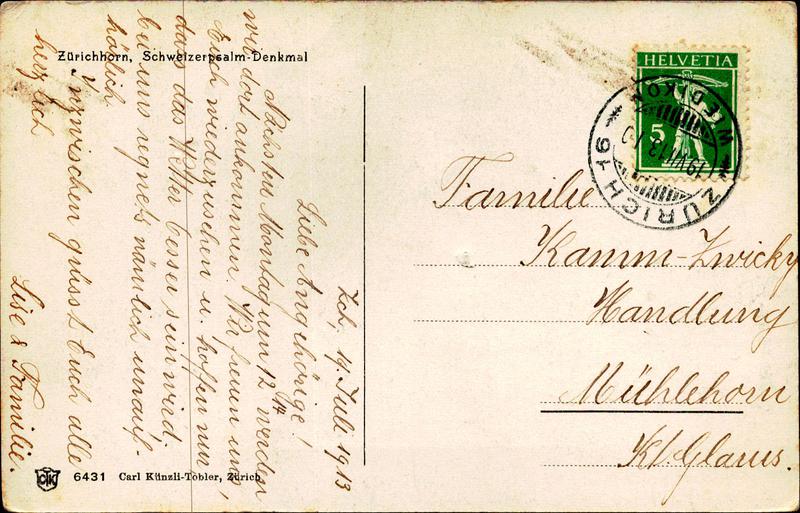 Zürichhorn, Schweizerpsalm-Denkmal
Zch, 19. Juli 1913
Liebe Angehörige!
Nächsten Montag um 12 Uhr werden
wir dort ankommen. Wir freuen uns,
Euch wiederzusehen u. hoffen nur
dass das Wetter besser sein wird,
bei uns regnets nämlich unauf-
hörlich
Inzwischen grüsst Euch alle
herzlich
Lise & Familie.
6431 Carl Künzli-Tobler, Zürich
HELVETIA
5
ZÜRICH 16
WIEDIKON
19.VII.13
Familie
Kamm-Zwicky
Handlung
Mühlehorn
Kt. Glarus.